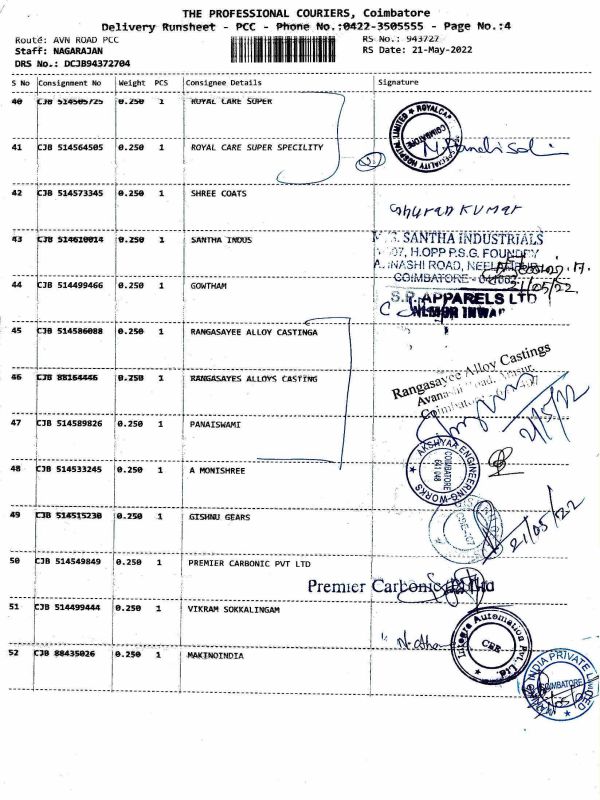 THE PROFESSIONAL COURIERS, Coimbatore
Delivery Runsheet - PCC - Phone No.:0422-3505555 - Page No.:4
Route: AVN ROAD PCC
RS No.: 943727
Staff: NAGARAJAN
RS Date: 21-May-2022
DRS No.: DCJB94372704
S No Consignment No Weight PCS Consignee Details Signature
40 CJB 514505725 0.250 1 ROYAL CARE SUPER
41 CJB 514564505 0.250 1 ROYAL CARE SUPER SPECILITY
42 CJB 514573345 0.250 1 SHREE COATS
43 CJB 514610014 0.250 1 SANTHA INDUS
SANTHA INDUSTRIALS
H.OPP P.S.G. FOUNDRY
44 CJB 514499466 0.250 1 GOWTHAM
COIMBATORE
21/05/22
S.P. APPARELS LTD
45 CJB 514586088 0.250 1 RANGASAYEE ALLOY CASTINGA
Rangasayee Alloy Castings
46 CJB 88164446 0.250 1 RANGASAYES ALLOYS CASTING
47 CJB 514589826 0.250 1 PANAISWAMI
AKSHYAA ENGINEERING WORKS
COIMBATORE
641 048
48 CJB 514533245 0.250 1 A MONISHREE
49 CJB 514515230 0.250 1 GISHNU GEARS
21/05/22
50 CJB 514549849 0.250 1 PREMIER CARBONIC PVT LTD
Premier Carbonic
51 CJB 514499444 0.250 1 VIKRAM SOKKALINGAM
Integra Automation Pvt. Ltd
CBE
52 CJB 88435026 0.250 1 MAKINOINDIA
INDIA PRIVATE LIMITED
COIMBATORE